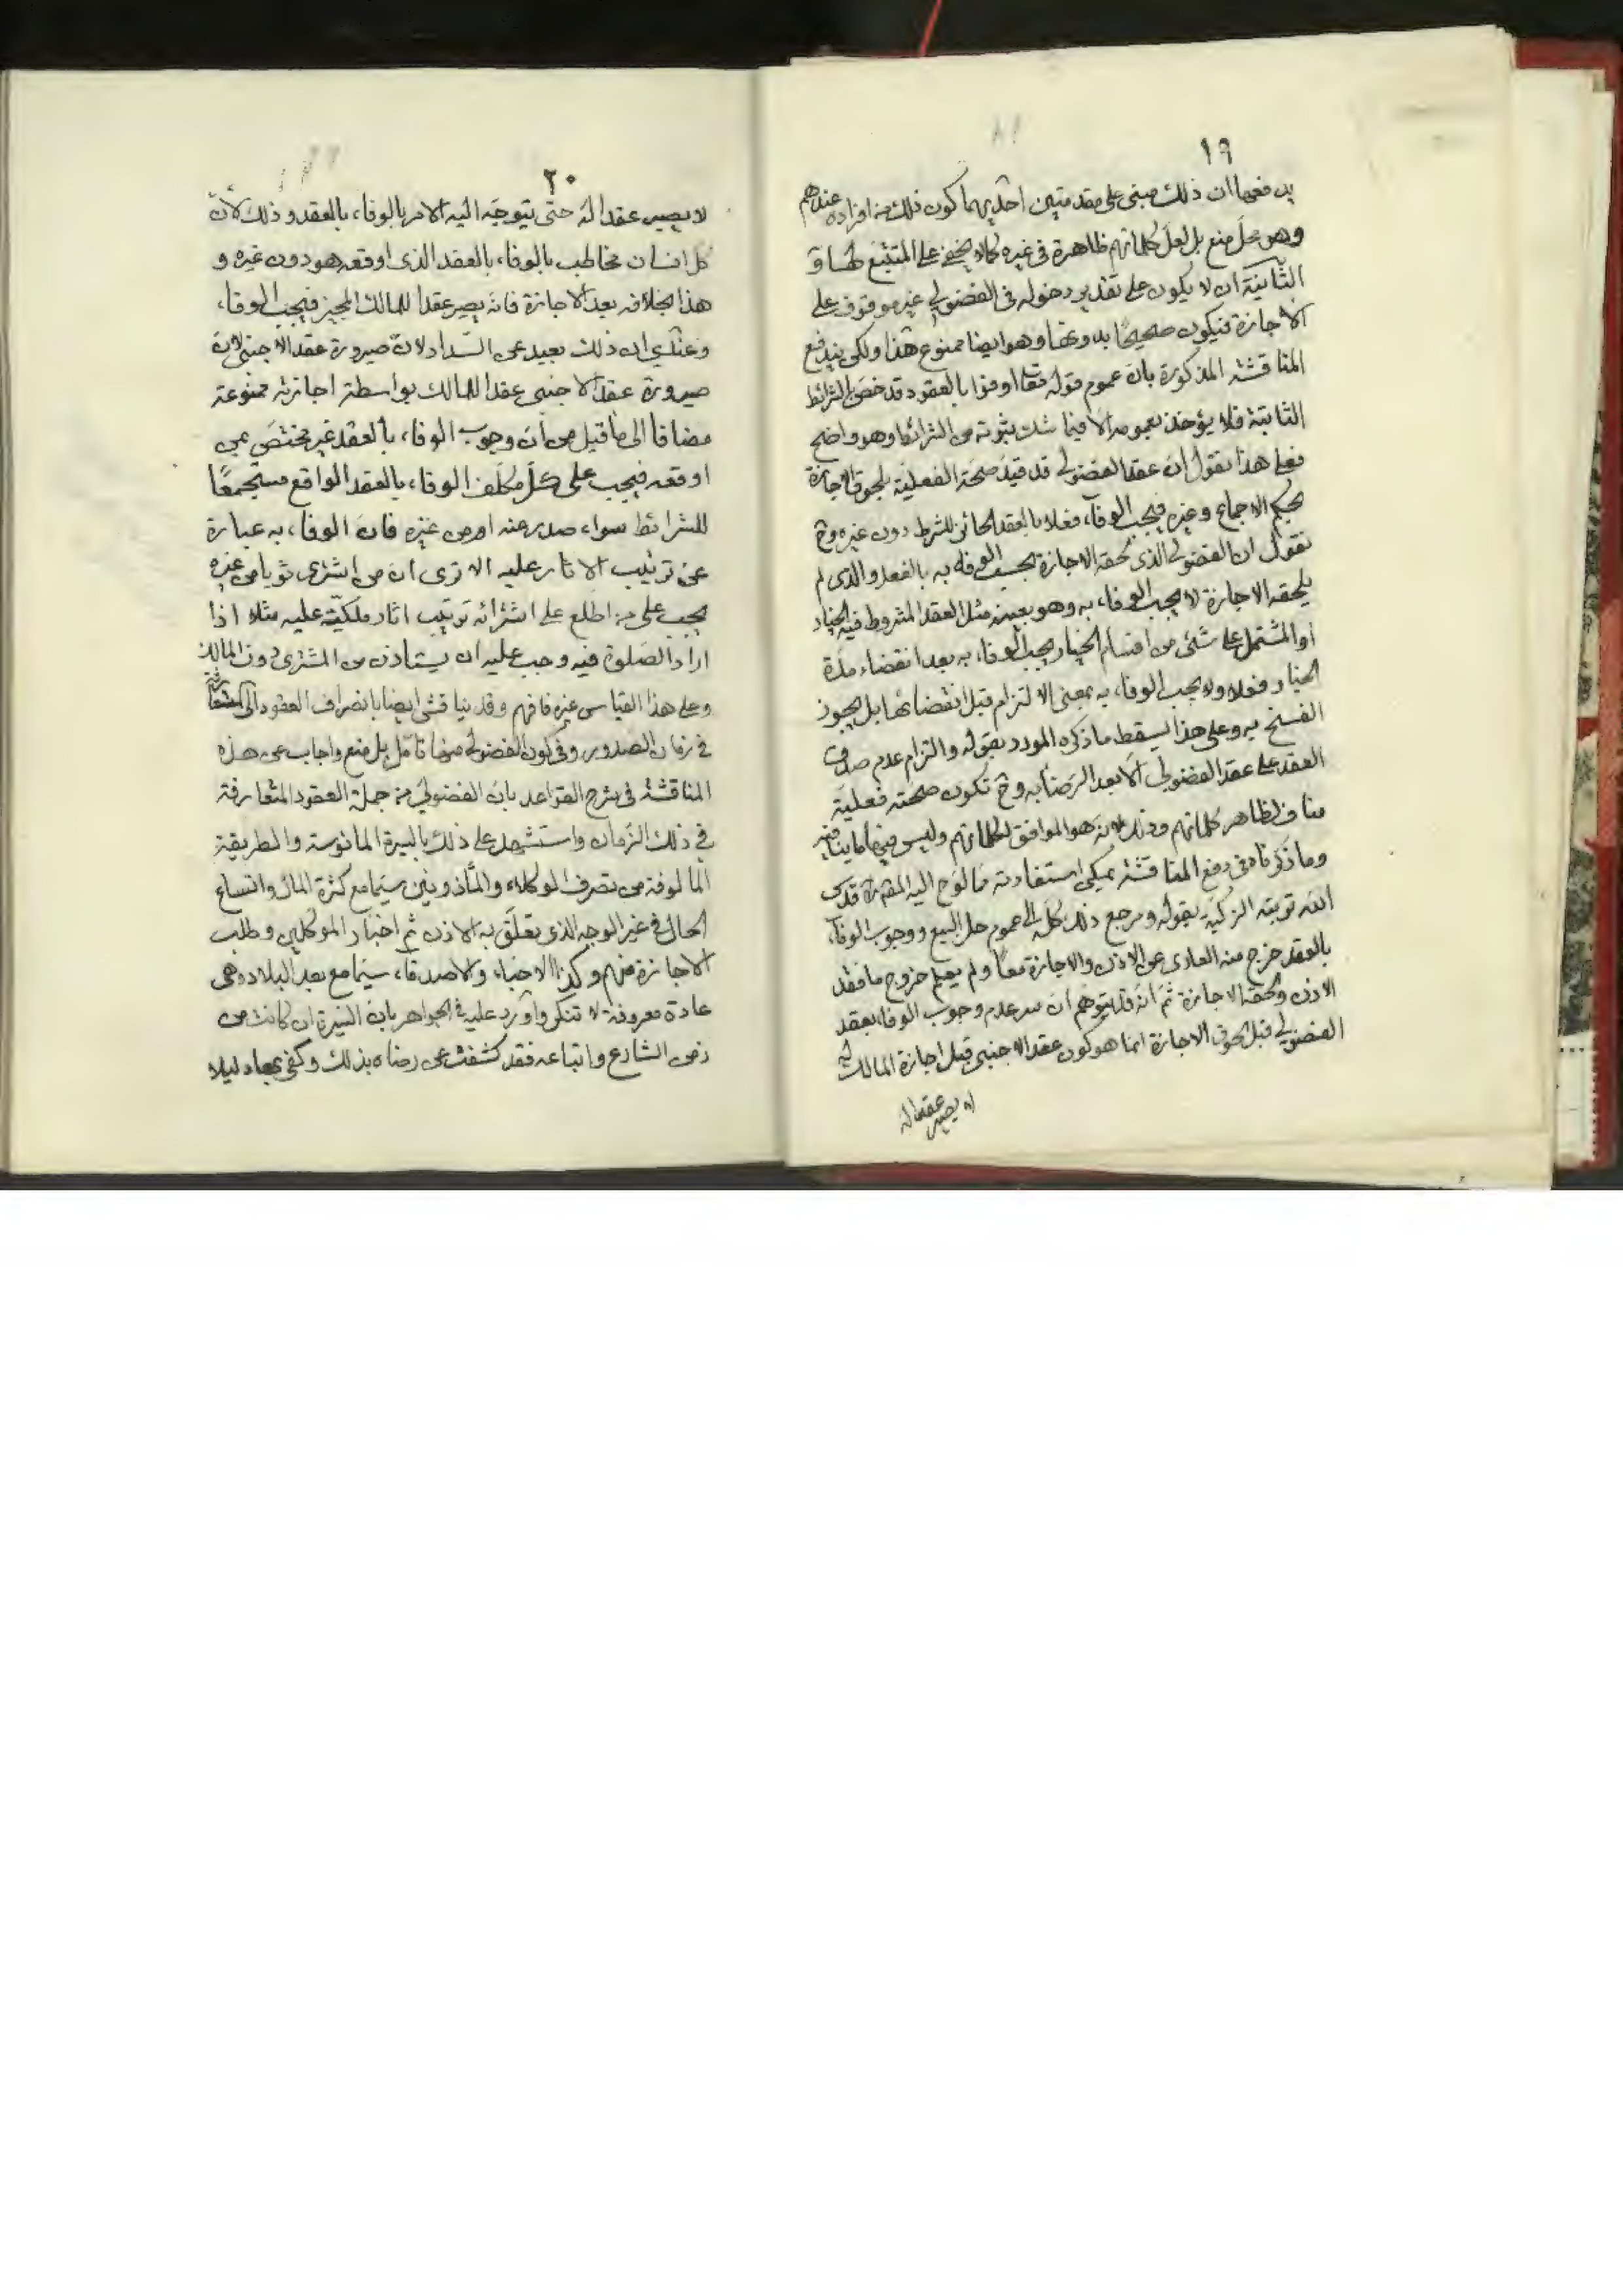 ١٩
يدفعها ان ذلك مبنى على مقدمتين احديهما كون ذلك من افراده عندهم
وهو محلّ منع بل لعلّ كلماتهم ظاهرة فى غيره كما لا يخفى على المتتبّع لها و
الثّانية ان لا يكون على تقدير دخوله فى الفضولي غير موقوف على
الاجازة فيكون صحيحًا بدونها وهو ايضا ممنوع هذا ولكن يندفع
المناقشة المذكورة بان عموم قوله تعا اوفوا بالعقود قد خصّ بالشرائط
الثابتة فلا يؤخذ بعمومه الّا فيما شك بثبوته من الشرائط وهو واضح
فعلى هذا نقول ان عقد الفضولى قد قيّد صحّة الفعليّة بلحوق الاجازة
بحكم الاجماع وغيره فيجب الوفاء فعلا بالعقد الحائز للشرط دون غيره وح
نقول ان الفضولى الذى لحقه الاجازة يجب الوفاء به بالفعل والذى لم
يلحقه الاجازة لا يجب الوفاء به وهو بعينه مثل العقد المشروط فيه الخيار
او المشتمل على شئ من اقسام الخيار يجب الوفاء به بعد انقضاء مدّة
الخيار فعلا ولا يجب الوفاء به بمعنى الالتزام قبل انقضائها بل يجوز
الفسخ به وعلى هذا يسقط ما ذكره المورد بقوله والتزام عدم صدق
العقد على عقد الفضولي الّا بعد الرّضا به وح تكون صحّته فعليّة
مناف لظاهر كلماتهم وذلك لانّه هو الموافق لكلماتهم وليس فيها ما ينافيه
وما ذكرناه فى دفع المناقشة يمكن استفادته مما لوّح اليه قدس
الله تربته الزكيّة بقوله ومرجع ذلك كلّه الى عموم حل البيع ووجوب الوفاء
بالعقد خرج منه العارى عن الاذن والاجازة معًا ولم يعلم خروج ما فقد
الاذن ولحقه الاجازة ثمّ انّه قد يتوهّم ان سر عدم وجوب الوفاء بعقد
الفضولي قبل لحوق الاجازة انما هو كون عقد الاجنبى قبل اجازة المالك له
لا يصير عقدا له
٢٠
لا يصير عقدا له حتّى يتوجّه اليه الامر بالوفاء بالعقد وذلك لانّ
كل انسان مخاطب بالوفاء بالعقد الذى اوقعه هو دون غيره و
هذا بخلافه بعد الاجازة فانّه يصير عقدا للمالك المجيز فيجب الوفاء
وعندي ان ذلك بعيد عن السّداد لانّ صيرورة عقد الاجنبى لانّ
صيرورة عقد الاجنبى عقدا للمالك بواسطة اجازته ممنوعة
مضافا الى ما قيل من ان وجوب الوفاء بالعقد غير مختصّ بمن
اوقعه فيجب على كلّ مكلّف الوفاء بالعقد الواقع مستجمعًا
للشرائط سواء صدر عنه او من غيره فان الوفاء به عبارة
عن ترتيب الاثار عليه الا ترى ان من اشترى ثوبا من غيره
يجب على من اطلع على اشترائه ترتيب اثار ملكيّته عليه مثلا اذا
اراد الصّلوة فيه وجب عليه ان يستاذن من المشترى دون المالك
وعلى هذا القياس غيره فافهم وقد يناقش ايضا بانصراف العقود الى
فى زمان الصدور وفى كون الفضولى منها تامّل بل منع واجاب عن هذه
المناقشة فى شرح القواعد بان الفضولي من جملة العقود المتعارفة
في ذلك الزّمان واستشهد على ذلك بالسيرة المانوسة والطريقة
المالوفة من تصرف الوكلاء والمأذونين سيّما مع كثرة المال واتساع
الحال فى غير الوجه الذى تعلّق به الاذن ثم اخبار الموكلين وطلب
الاجازة منهم وكذا الاحبّاء والاصدقاء سيّما مع بعد البلاد وهى
عادة معروفة لا تنكر واورد عليه فى الجواهر بان السّيرة ان كانت من
زمن الشارع واتباعه فقد كشفت عن رضاه بذلك وكفى بها دليلا